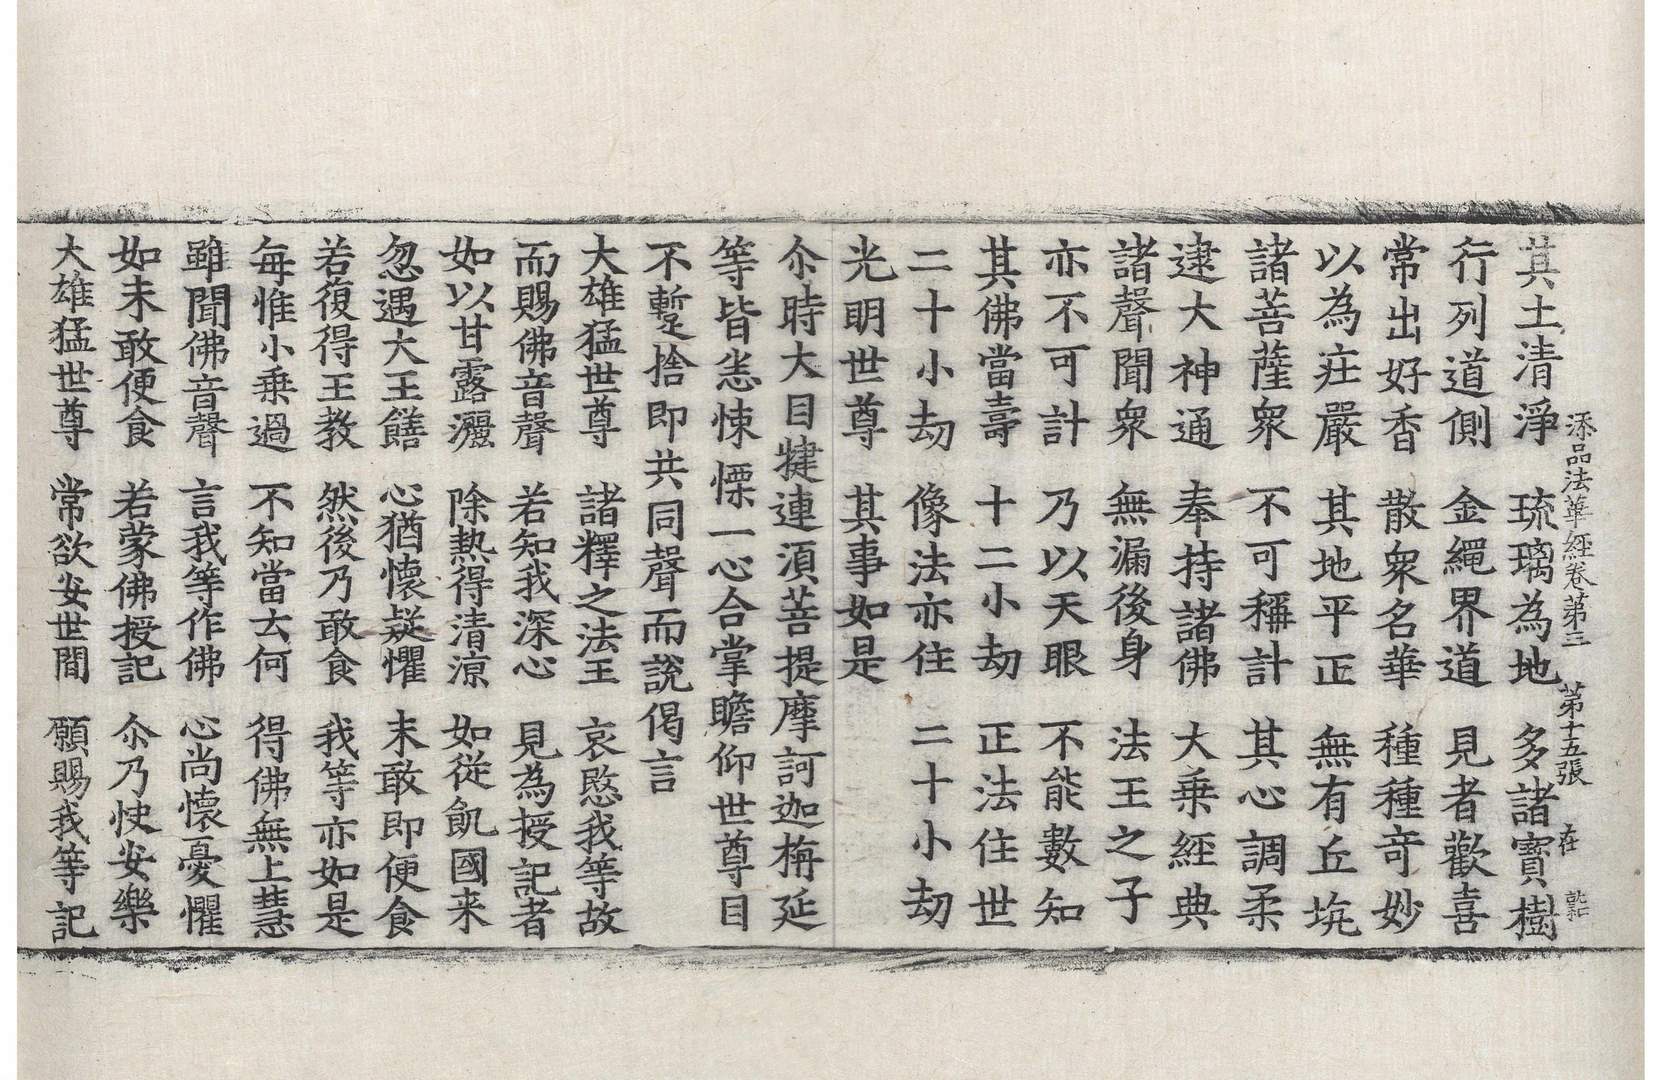 添品法華經卷第三 第十五張 在
其土清淨 琉璃為地 多諸寶樹
行列道側 金繩界道 見者歡喜
常出好香 散衆名華 種種竒妙
以為莊嚴 其地平正 無有丘坑
諸菩薩衆 不可稱計 其心調柔
逮大神通 奉持諸佛 大乗經典
諸聲聞衆 無漏後身 法王之子
亦不可計 乃以天眼 不能數知
其佛當壽 十二小劫 正法住世
二十小劫 像法亦住 二十小劫
光明世尊 其事如是
尒時大目犍連須菩提摩訶迦栴延
等皆悉悚慄一心合掌瞻仰世尊目
不蹔捨即共同聲而說偈言
大雄猛世尊 諸釋之法王 哀愍我等故
而賜佛音聲 若知我深心 見為授記者
如以甘露灑 除熱得清涼 如從飢國来
忽遇大王饍 心猶懷疑懼 未敢即便食
若復得王教 然後乃敢食 我等亦如是
每惟小乗過 不知當去何 得佛無上慧
雖聞佛音聲 言我等作佛 心尚懷憂懼
如未敢便食 若蒙佛授記 尒乃快安樂
大雄猛世尊 常欲安世間 願賜我等記